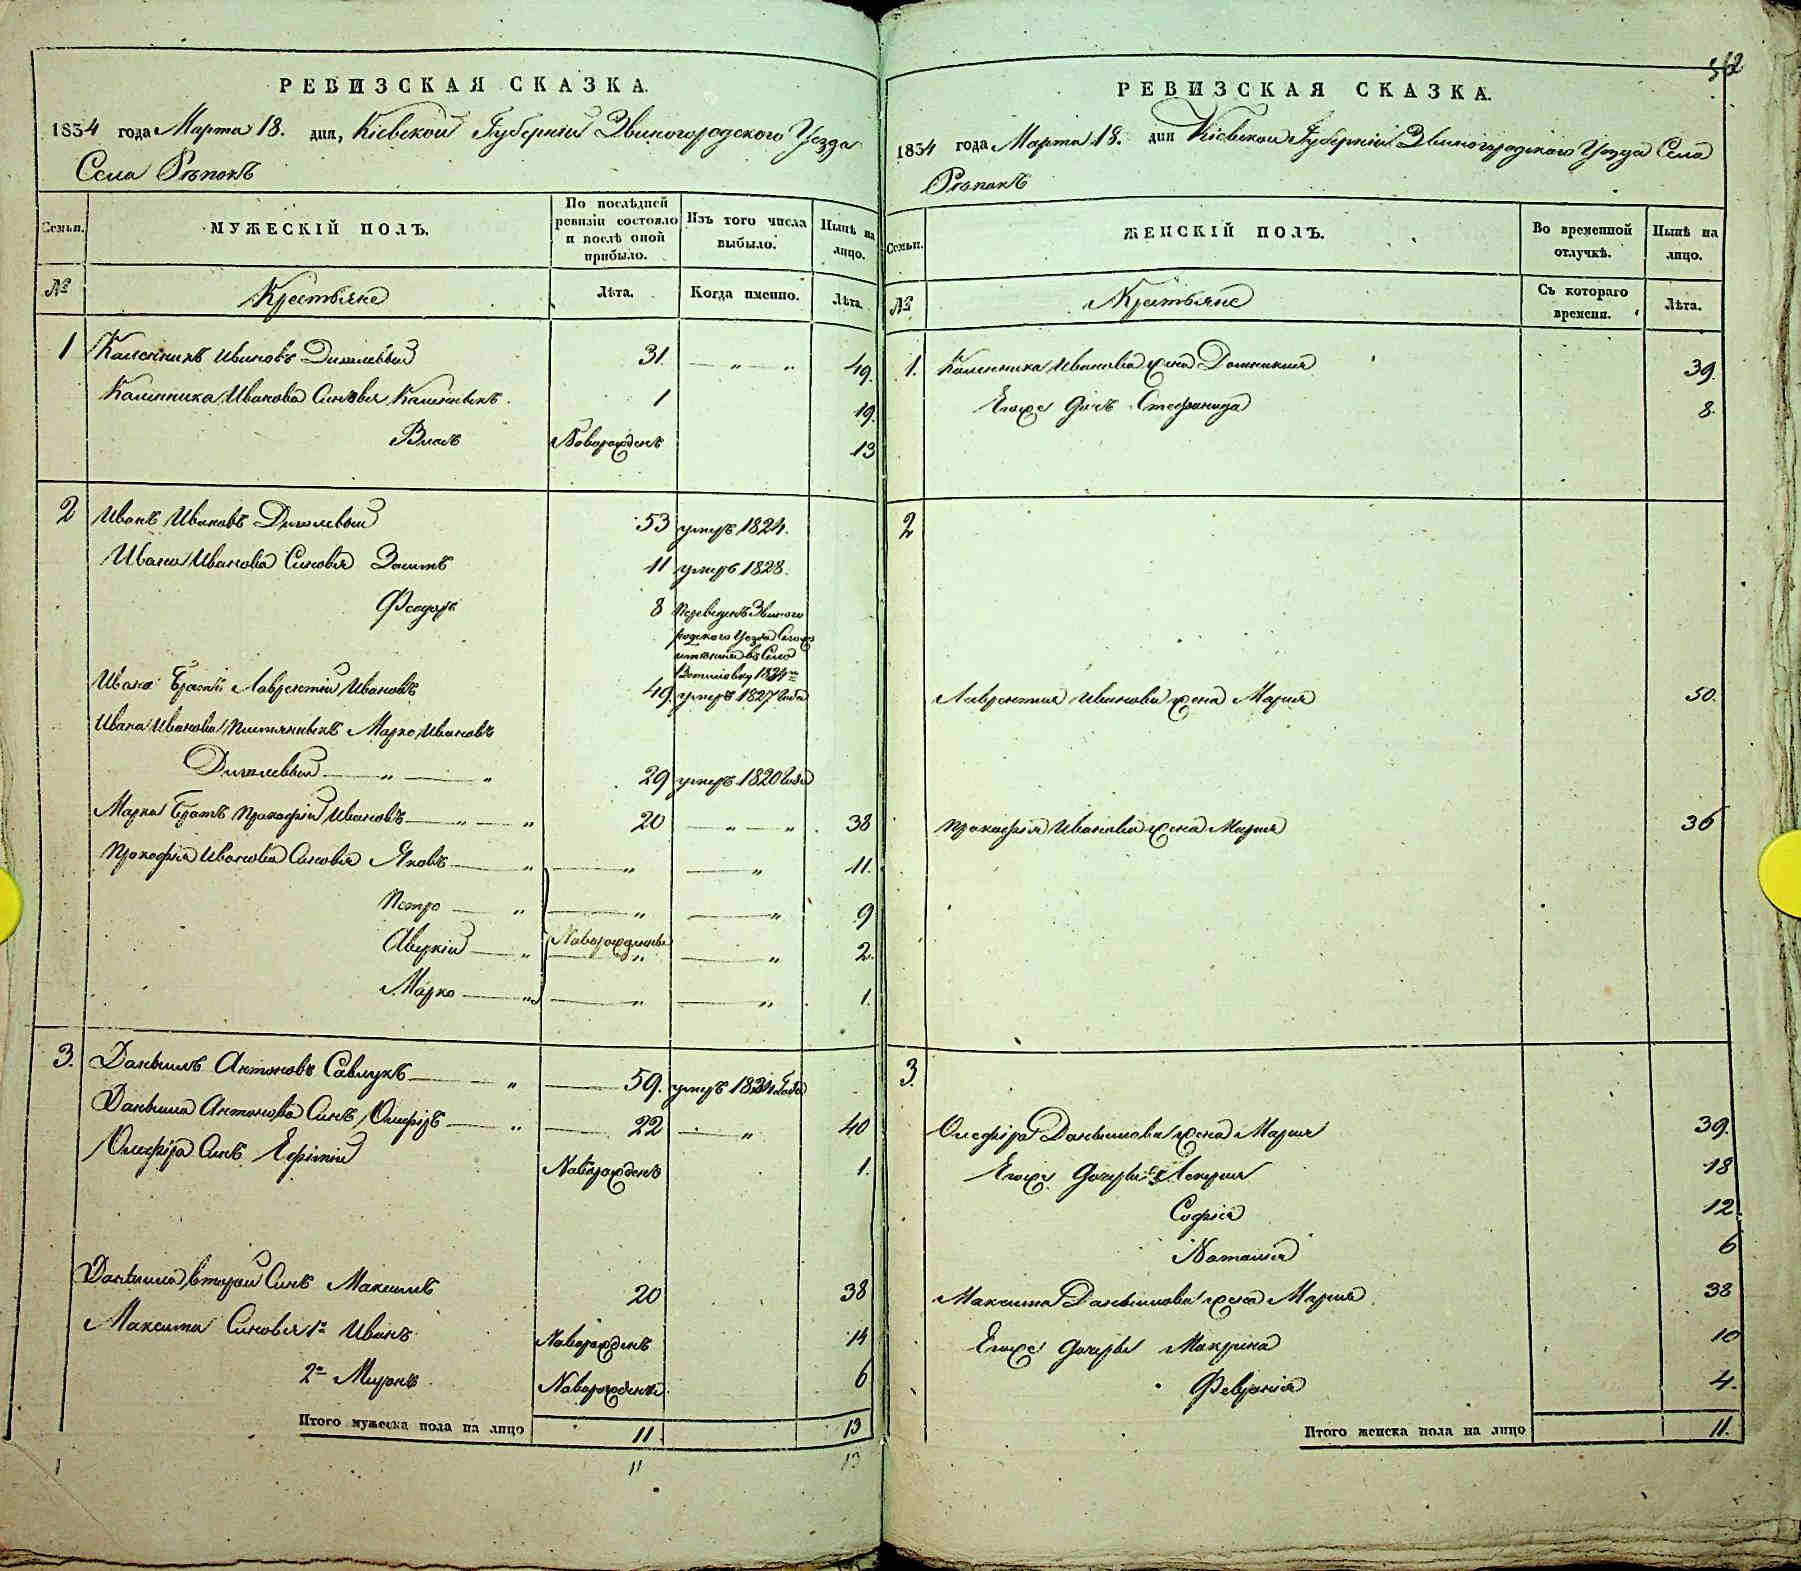 РЕВИЗСКАЯ СКАЗКА.
1834 года Марта 18. дня, Кіевской Губерніи Звиногородского Уезда
Села Репокъ
Семьи.
МУЖЕСКІЙ ПОЛЪ.
По послѣдней ревизіи состояло и послѣ оной прибыло.
Изъ того числа выбыло.
Нынѣ на лицо.
№
Крестьяне
Лѣта.
Когда именно.
Лѣта.
1 Каленникъ Ивановъ 31. 49.
Каленника Иванова Синовья 1 19.
Власъ Новорожденъ 13
2 Иванъ Ивановъ 53 умеръ 1824.
Ивана Иванова Синовья 11 умеръ 1828.
Феодоръ 8 Переведенъ Звиного
родского Уезда
въ Село
Ивана Братъ Лаврентій Ивановъ 49. умеръ 1827 Года
Ивана Иванова Племянникъ Марко Ивановъ
29 умеръ 1820 Года
Марка Братъ Прокофій Ивановъ 20 38
Прокофія Иванова Синовья Яковъ 11.
Петро 9
Аверкій Новорожденные 2.
Марко 1.
3. Данѣилъ Антоновъ Савлукъ 59. умеръ Года
Данѣила Антонова Синъ Олефіръ 22 40
Олефіра Синъ Новорожденъ 1.
Данѣила второй Синъ Максимъ 20 38
Максима Синовья 1й Иванъ Новорожденъ 14
2й Миронъ Новорожденъ 6
Итого мужеска пола на лицо 11 13
1 11 13
562
РЕВИЗСКАЯ СКАЗКА.
1834 года Марта 18. дня Кіевской Губерніи Звиногородского Уезда Села
Репокъ
Семьи.
ЖЕНСКІЙ ПОЛЪ.
Во временной отлучкѣ.
Нынѣ на лицо.
№
Крестьяне
Съ котораго времени.
Лѣта.
1. Каленника Иванова жена Домникия 39.
Егоже дочъ Стефанида 8.
2
Лаврентия Иванова жена Мария 50.
Прокофія Иванова жена Мария 36
3.
Олефіра Данѣилова жена Мария 39.
Егоже дочери 18
Софія 12.
Наталія 6
Максима Данѣилова жена Мария 38
Егоже дочеры Макрина 10
Февронія 4.
Итого женска пола на лицо 11.